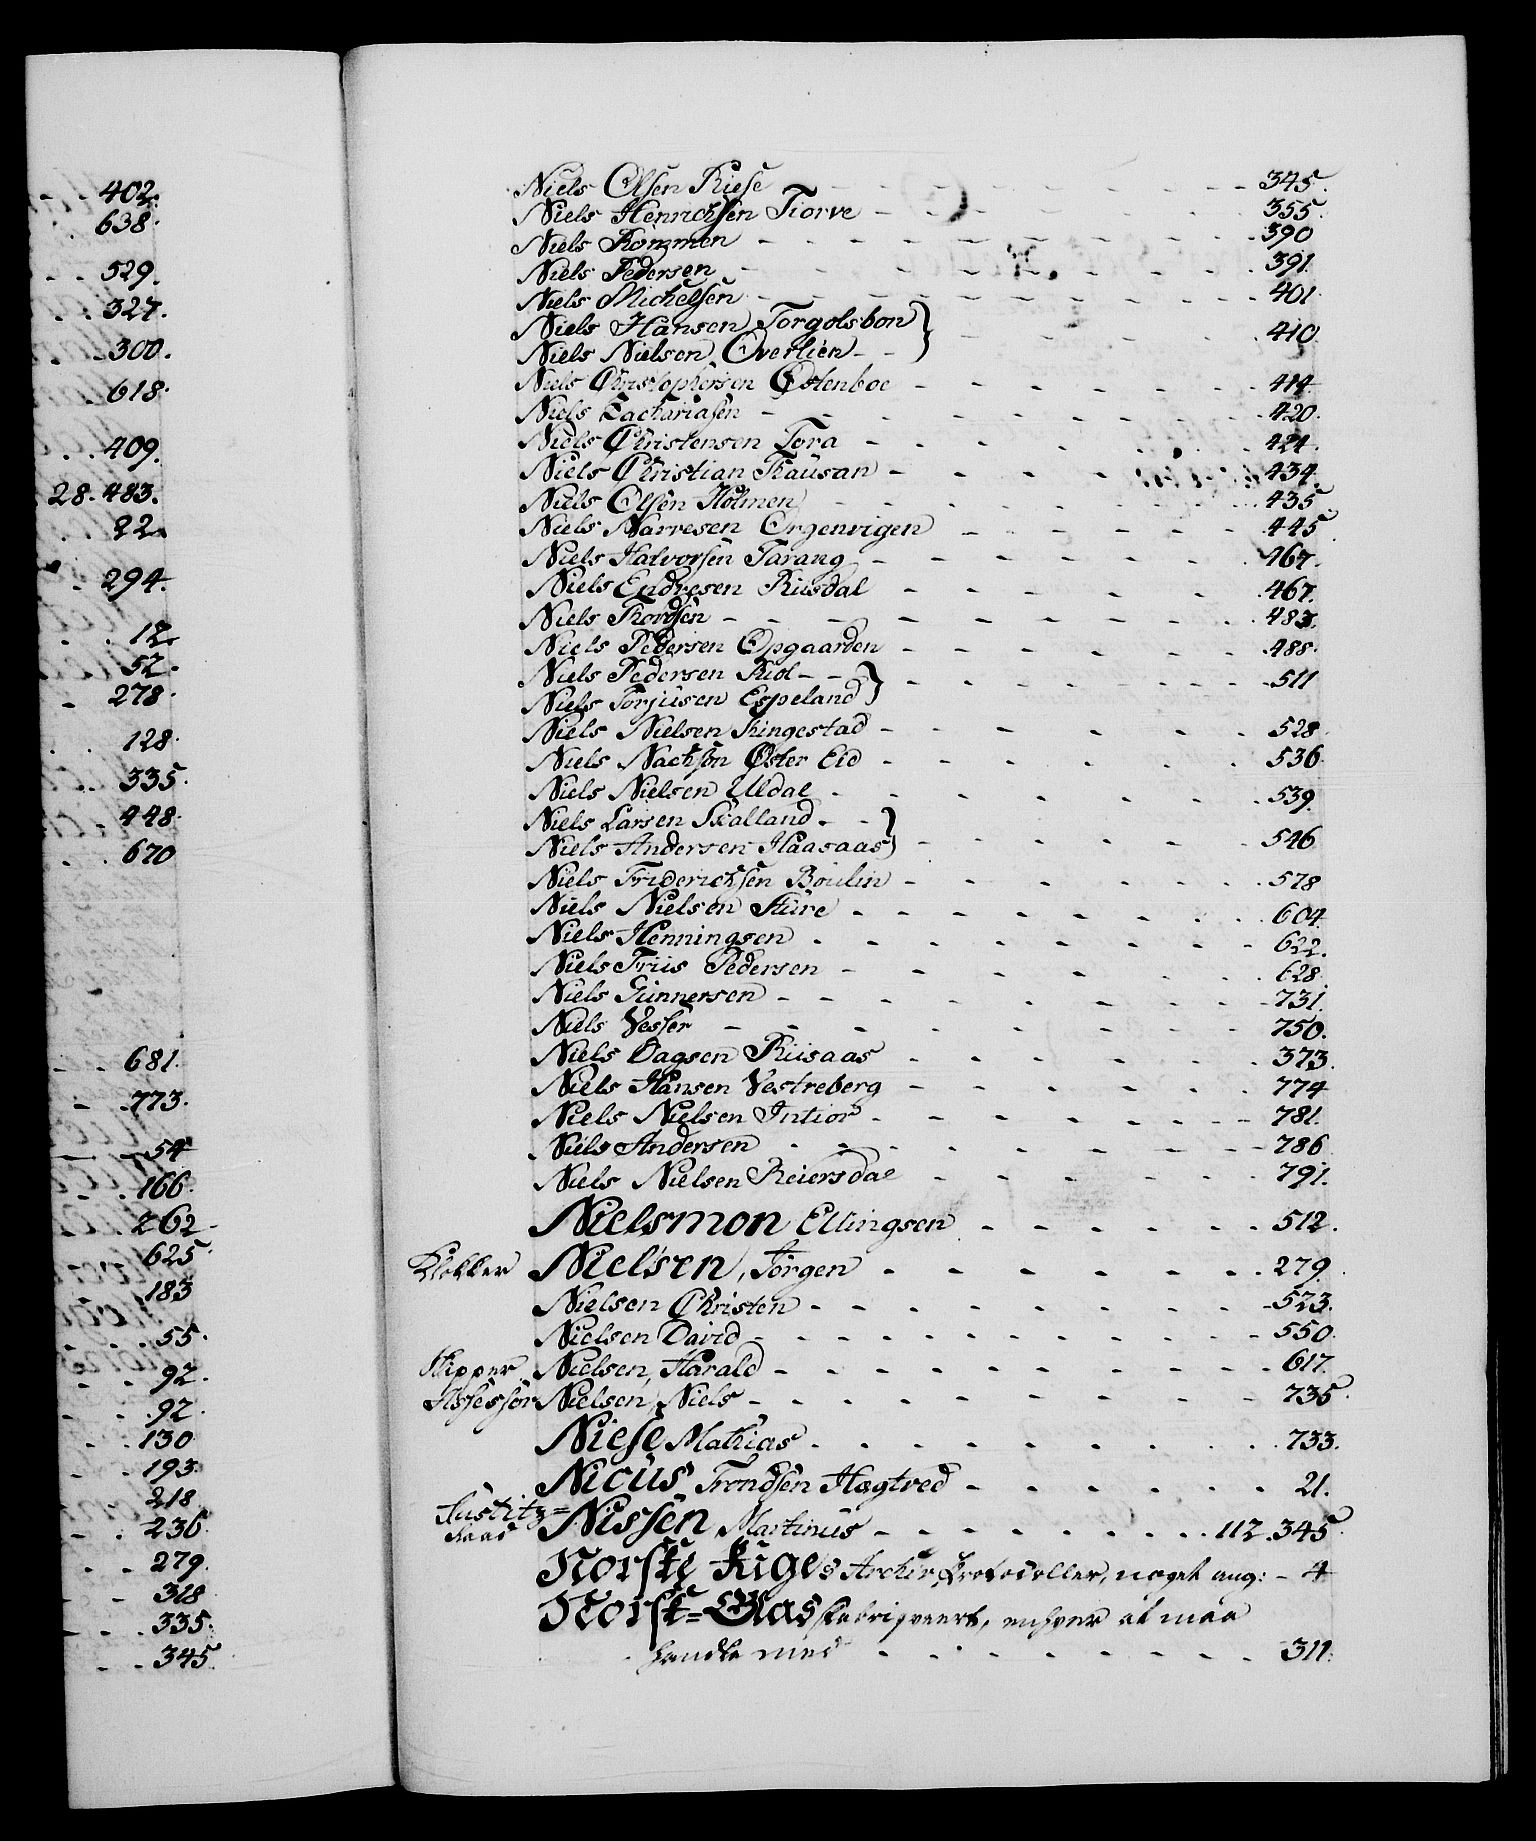 402.
638.
529.
327.
300.
618.
409.
28. 483.
22.
294.
12.
52.
278.
128.
335.
448.
670
681.
773.
54
166.
262
625.
183
55.
92.
92.
130
193.
218.
236.
279.
318
335.
345
Niels Olsen Riese - - - 345.
Niels Henrichsen Tiorve - - - 355.
Niels Rommen - - - 390
Niels Pedersen - - - 391.
Niels Michelsen - - - 401.
Niels Hansen Torgolsbon }
Niels Nielsen Overlien } - - - 410.
Niels Christophersen Østenboe - - - 414.
Niels Zachariasen - - - 420.
Niels Christensen Tora - - - 424.
Niels Christian Thausan - - - 434.
Niels Olsen Holmen - - - 435
Niels Narvesen Orgenvigen - - - 445.
Niels Halvorsen Tarang - - - 467.
Niels Endresen Riisdal - - - 467.
Niels Thordsen - - - 483.
Niels Pedersen Opgaarden - - - 485.
Niels Pedersen Riol }
Niels Torjusen Espeland } - - - 511
Niels Nielsen Ringestad - - - 528.
Niels Nachson Øster Eid - - - 536.
Niels Nielsen Uldal - - - 539.
Niels Larsen Skalland }
Niels Andersen Haasaas } - - - 546
Niels Friderichsen Boulin - - - 578
Niels Nielsen Sture - - - 604.
Niels Henningsen - - - 622.
Niels Friis Pedersen - - - 628.
Niels Gunnersen - - - 731.
Niels Vesser - - - 750.
Niels Dagsen Riisaas - - - 373.
Niels Hansen Vestreberg - - - 774
Niels Nielsen Intior - - - 781.
Niels Andersen - - - 786
Niels Nielsen Reiersdal - - - 791.
Nielsmon Ellingsen - - - 512.
Klokker Nielsen, Jørgen - - - 279.
Nielsen Christen - - - 523.
Nielsen David - - - 550.
Skipper Nielsen, Harald - - - 617.
Assessor Nielsen, Niels - - - 735.
Niese Mathias - - - 733.
Nicus Trondsen Hægtved - - - 21.
Justitz=
Raad Nissen, Martinus - - - 112. 345.
Norske Riges Archiv Protocoller, noget ang: - 4
Norsk=Glas fabriqveert, enhver at maa
handle med - - - 311.